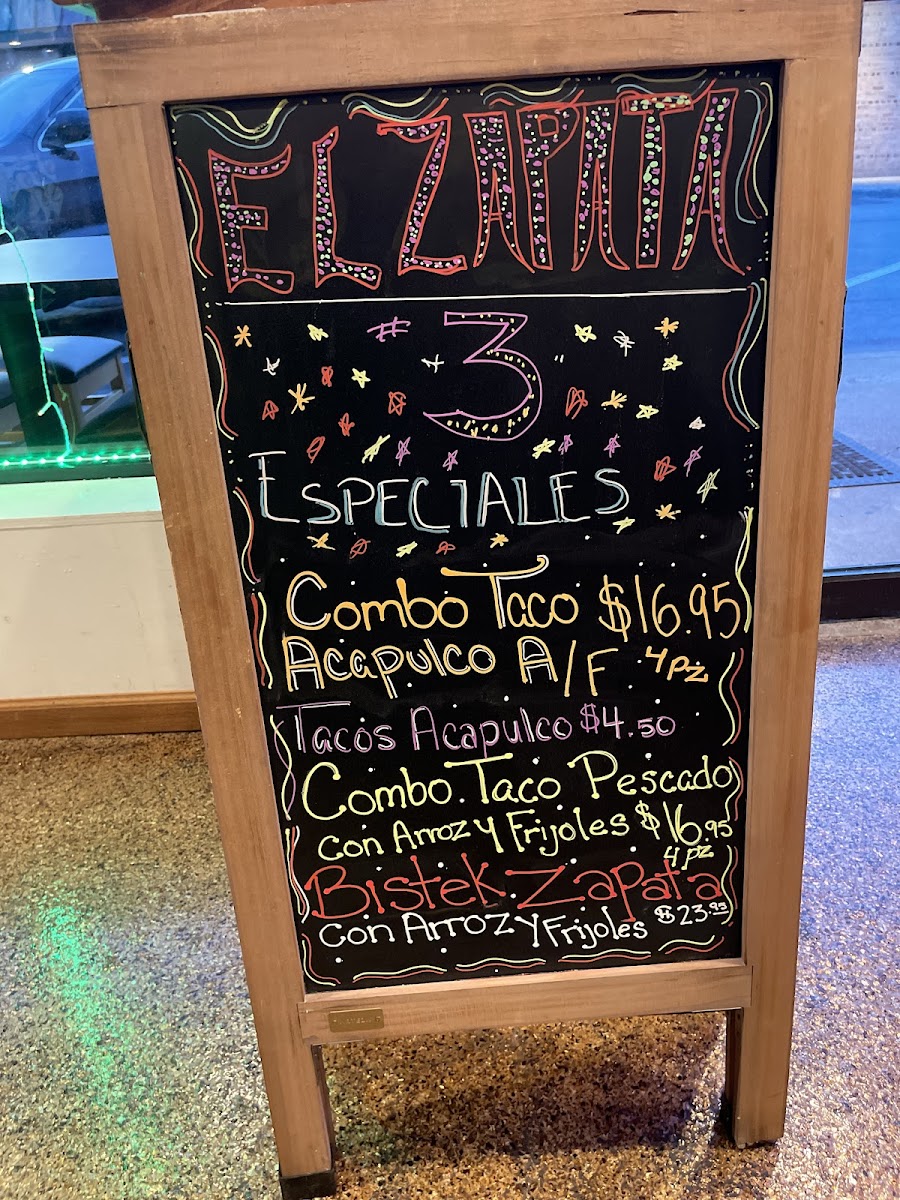 EL ZAPATA
# 3
ESPECIALES
Combo Taco $16.95
Acapulco A/F 4pz
Tacos Acapulco $4.50
Combo Taco Pescado
con Arroz y Frijoles $16.95
4 pz
Bistek Zapata
con Arroz y Frijoles $23.95